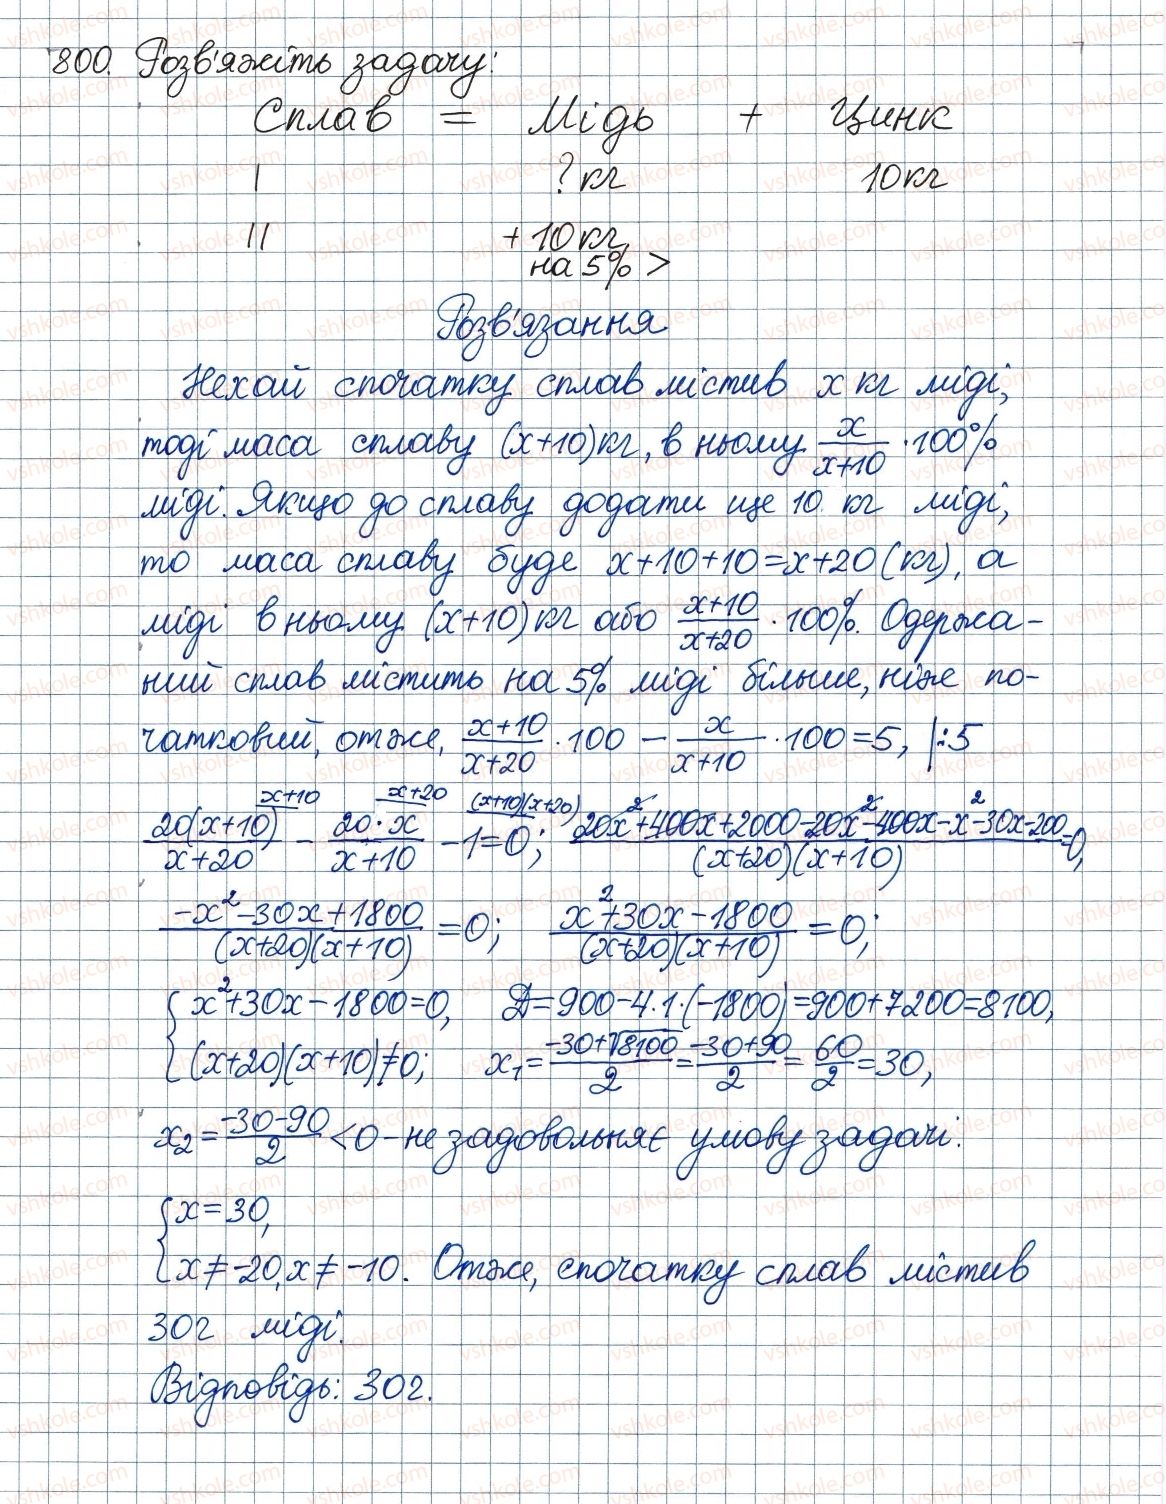 800. Розв'яжіть задачу:
Сплав = Мідь + Цинк
I ? кг 10 кг
II + 10 кг,
на 5% >
Розв'язання
Нехай спочатку сплав містив x кг міді,
тоді маса сплаву (x+10) кг, в ньому x/(x+10) · 100%
міді. Якщо до сплаву додати ще 10 кг міді,
то маса сплаву буде x+10+10=x+20 (кг), а
міді в ньому (x+10) кг або (x+10)/(x+20) · 100%. Одержа-
ний сплав містить на 5% міді більше, ніж по-
чатковий, отже, (x+10)/(x+20) · 100 − x/(x+10) · 100 = 5, |:5
20(x+10)/(x+20) ^(x+10) − 20·x/(x+10) ^(x+20) − 1 ^((x+10)(x+20)) = 0; (20x²+400x+2000−20x²−400x−x²−30x−200)/((x+20)(x+10)) = 0,
(−x²−30x+1800)/((x+20)(x+10)) = 0; (x²+30x−1800)/((x+20)(x+10)) = 0;
{ x²+30x−1800=0, Д=900−4·1·(−1800)=900+7200=8100,
(x+20)(x+10)≠0; x₁=(−30+√8100)/2=(−30+90)/2=60/2=30,
x₂=(−30−90)/2<0 - не задовольняє умову задачі.
{ x=30,
x≠−20, x≠−10. Отже, спочатку сплав містив
30г міді.
Відповідь: 30г.